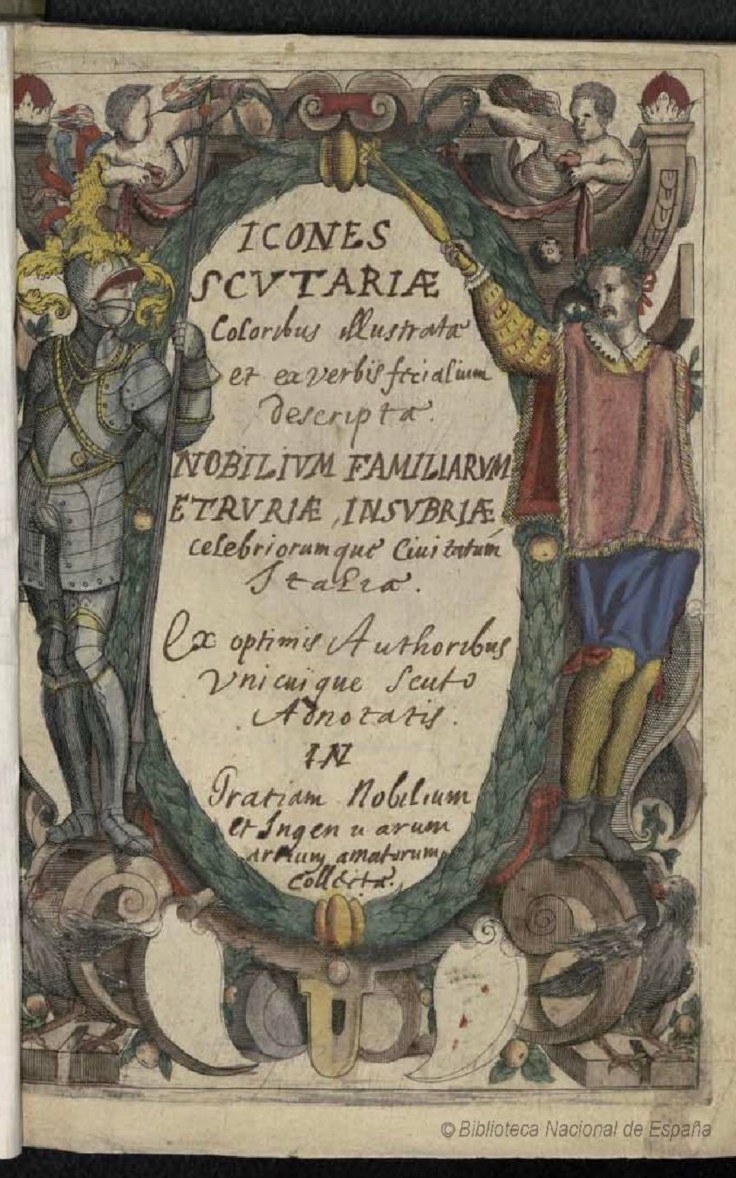 ICONES
SCVTARIÆ
Coloribus illustratæ
et ex verbis fecialium
descriptæ.
NOBILIVM FAMILIARVM
ETRVRIÆ, INSVBRIÆ
celebriorumque Ciuitatum
Italiæ.
Ex optimis Authoribus
Vnicuique Scuto
Adnotatis.
IN
Gratiam Nobilium
et Ingenuarum
artium amatorum
Collectæ.
© Biblioteca Nacional de España